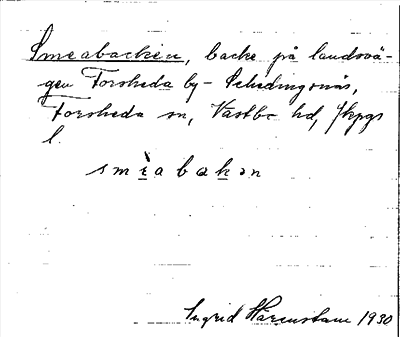 Smeabacken, backe på landsvä-
gen Forsheda by - Schedingsnäs,
Forsheda sn, Västbo hd, Jkpgs
l.
smèabakən
Ingrid Härenstam 1930